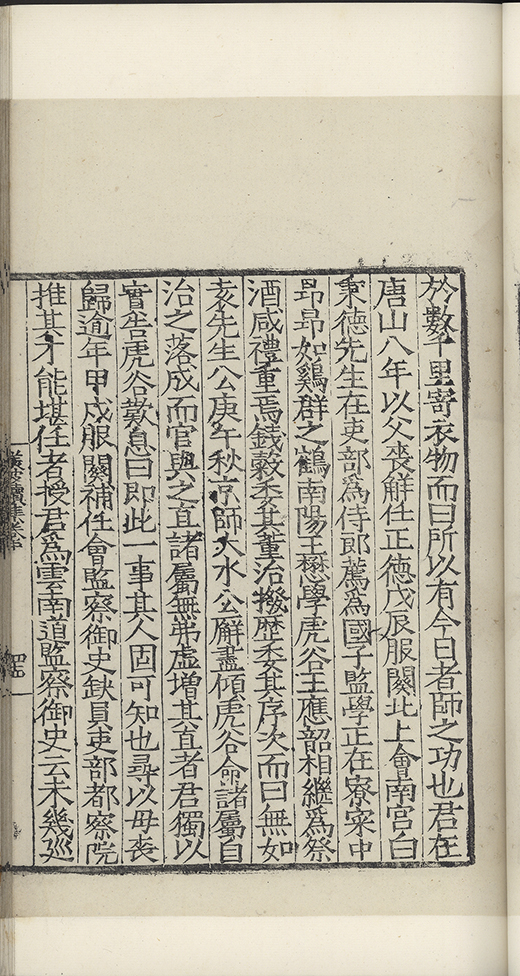 於數千里寄衣物而曰所以有今日者師之功也君在
唐山八年以父喪解任正德戊辰服闋北上會南宫白
秉德先生在吏部爲侍郎薦爲國子監學正在寮寀中
昻昻如鷄群之鶴南陽王懋學虎谷王應韶相繼爲祭
酒咸禮重焉錢穀委其董治撥歴委其序次而曰無如
袁先生公庚午秋京師大水公廨盡傾虎谷命諸屬自
治之落成而官與之直諸屬無弗虚增其直者君獨以
實告虎谷歎息曰即此一事其人固可知也尋以母喪
歸逾年甲戌服闋補任會監察御史缺員吏部都察院
推其才能堪任者授君爲雲南道監察御史云未幾廵